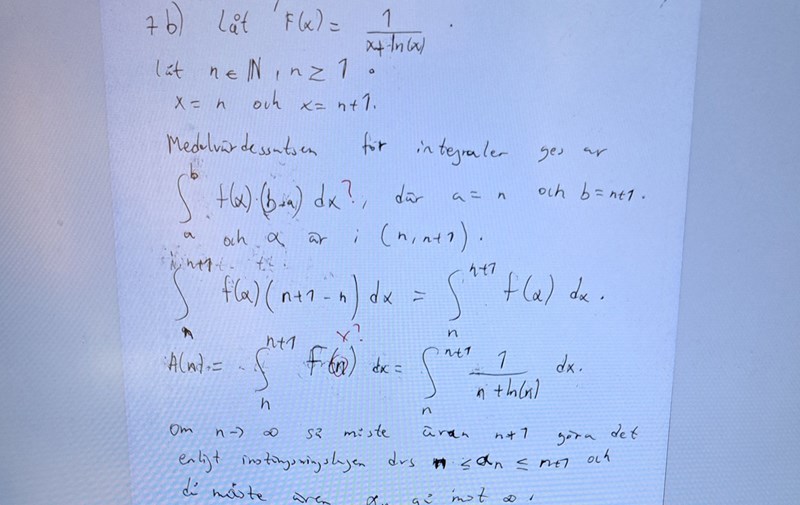 7 b) Låt f(x) = 1/(x+ln(x)).
låt n ∈ ℕ, n ≥ 1.
x = n och x = n+1.
Medelvärdessatsen för integraler ges av
∫_a^b f(α)·(b-a) dx?, där a = n och b = n+1.
och α är i (n, n+1).
∫_n^{n+1} f(α)(n+1-n) dx = ∫_n^{n+1} f(α) dx.
x?
A(n) = ∫_n^{n+1} f(n) dx = ∫_n^{n+1} 1/(n+ln(n)) dx.
Om n → ∞ så måste även n+1 göra det
enligt instängningslagen dvs n ≤ α_n ≤ n+1 och
då måste även α_n gå mot ∞.